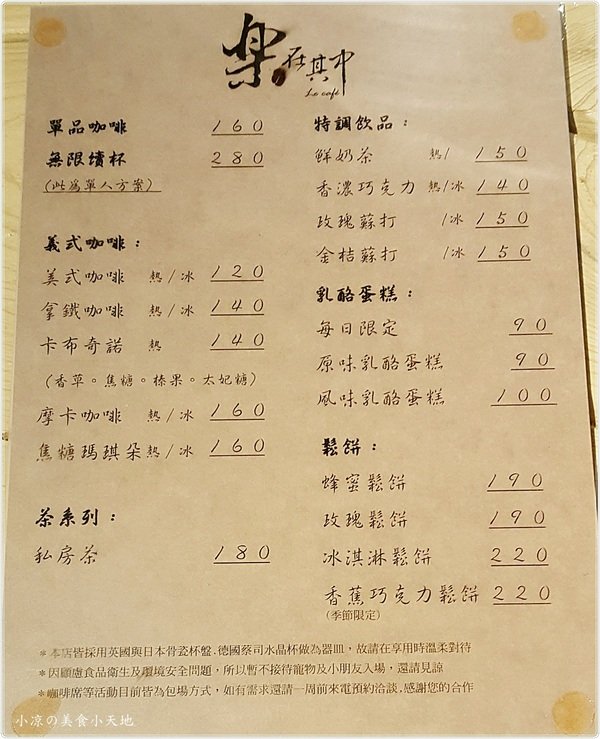 樂在其中
Le café
單品咖啡 160
無限續杯 280
(此為單人方案)
義式咖啡：
美式咖啡 熱/冰 120
拿鐵咖啡 熱/冰 140
卡布奇諾 熱 140
(香草。焦糖。榛果。太妃糖)
摩卡咖啡 熱/冰 160
焦糖瑪琪朵 熱/冰 160
茶系列：
私房茶 180
特調飲品：
鮮奶茶 熱/ 150
香濃巧克力 熱/冰 140
玫瑰蘇打 /冰 150
金桔蘇打 /冰 150
乳酪蛋糕：
每日限定 90
原味乳酪蛋糕 90
風味乳酪蛋糕 100
鬆餅：
蜂蜜鬆餅 190
玫瑰鬆餅 190
冰淇淋鬆餅 220
香蕉巧克力鬆餅 220
(季節限定)
＊本店皆採用英國與日本骨瓷杯盤.德國蔡司水晶杯做為器皿，故請在享用時溫柔對待
＊因顧慮食品衛生及環境安全問題，所以暫不接待寵物及小朋友入場，還請見諒
＊咖啡席等活動目前皆為包場方式，如有需求還請一周前來電預約洽談.感謝您的合作
小凉の美食小天地